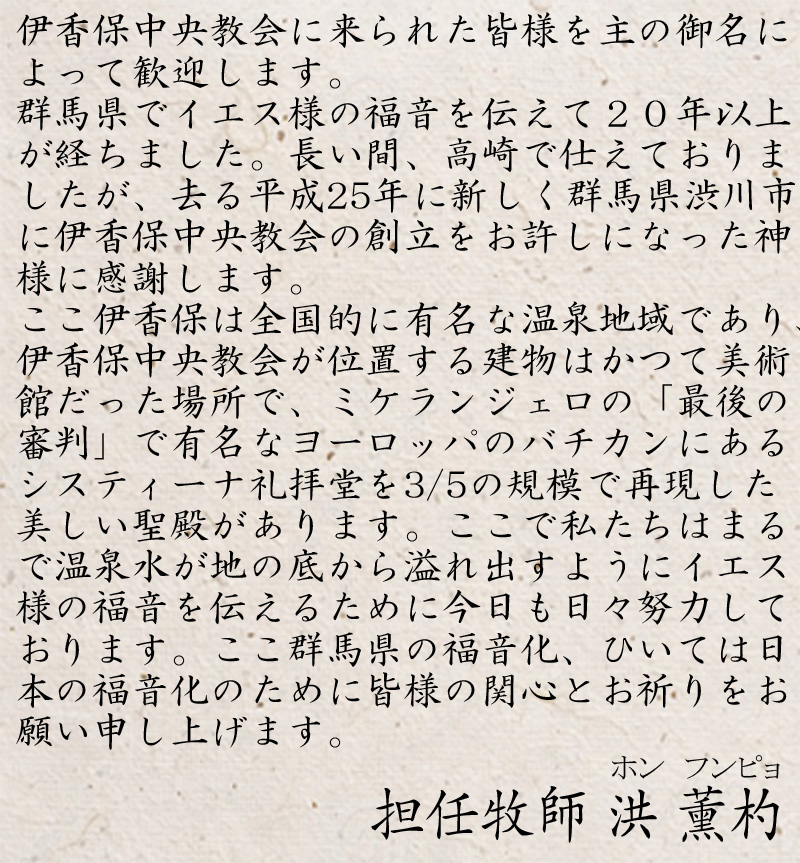 伊香保中央教会に来られた皆様を主の御名に
よって歓迎します。
群馬県でイエス様の福音を伝えて２０年以上
が経ちました。長い間、高崎で仕えておりま
したが、去る平成25年に新しく群馬県渋川市
に伊香保中央教会の創立をお許しになった神
様に感謝します。
ここ伊香保は全国的に有名な温泉地域であり、
伊香保中央教会が位置する建物はかつて美術
館だった場所で、ミケランジェロの「最後の
審判」で有名なヨーロッパのバチカンにある
システィーナ礼拝堂を3/5の規模で再現した
美しい聖殿があります。ここで私たちはまる
で温泉水が地の底から溢れ出すようにイエス
様の福音を伝えるために今日も日々努力して
おります。ここ群馬県の福音化、ひいては日
本の福音化のために皆様の関心とお祈りをお
願い申し上げます。
ホン　フンピョ
担任牧師 洪 薫杓